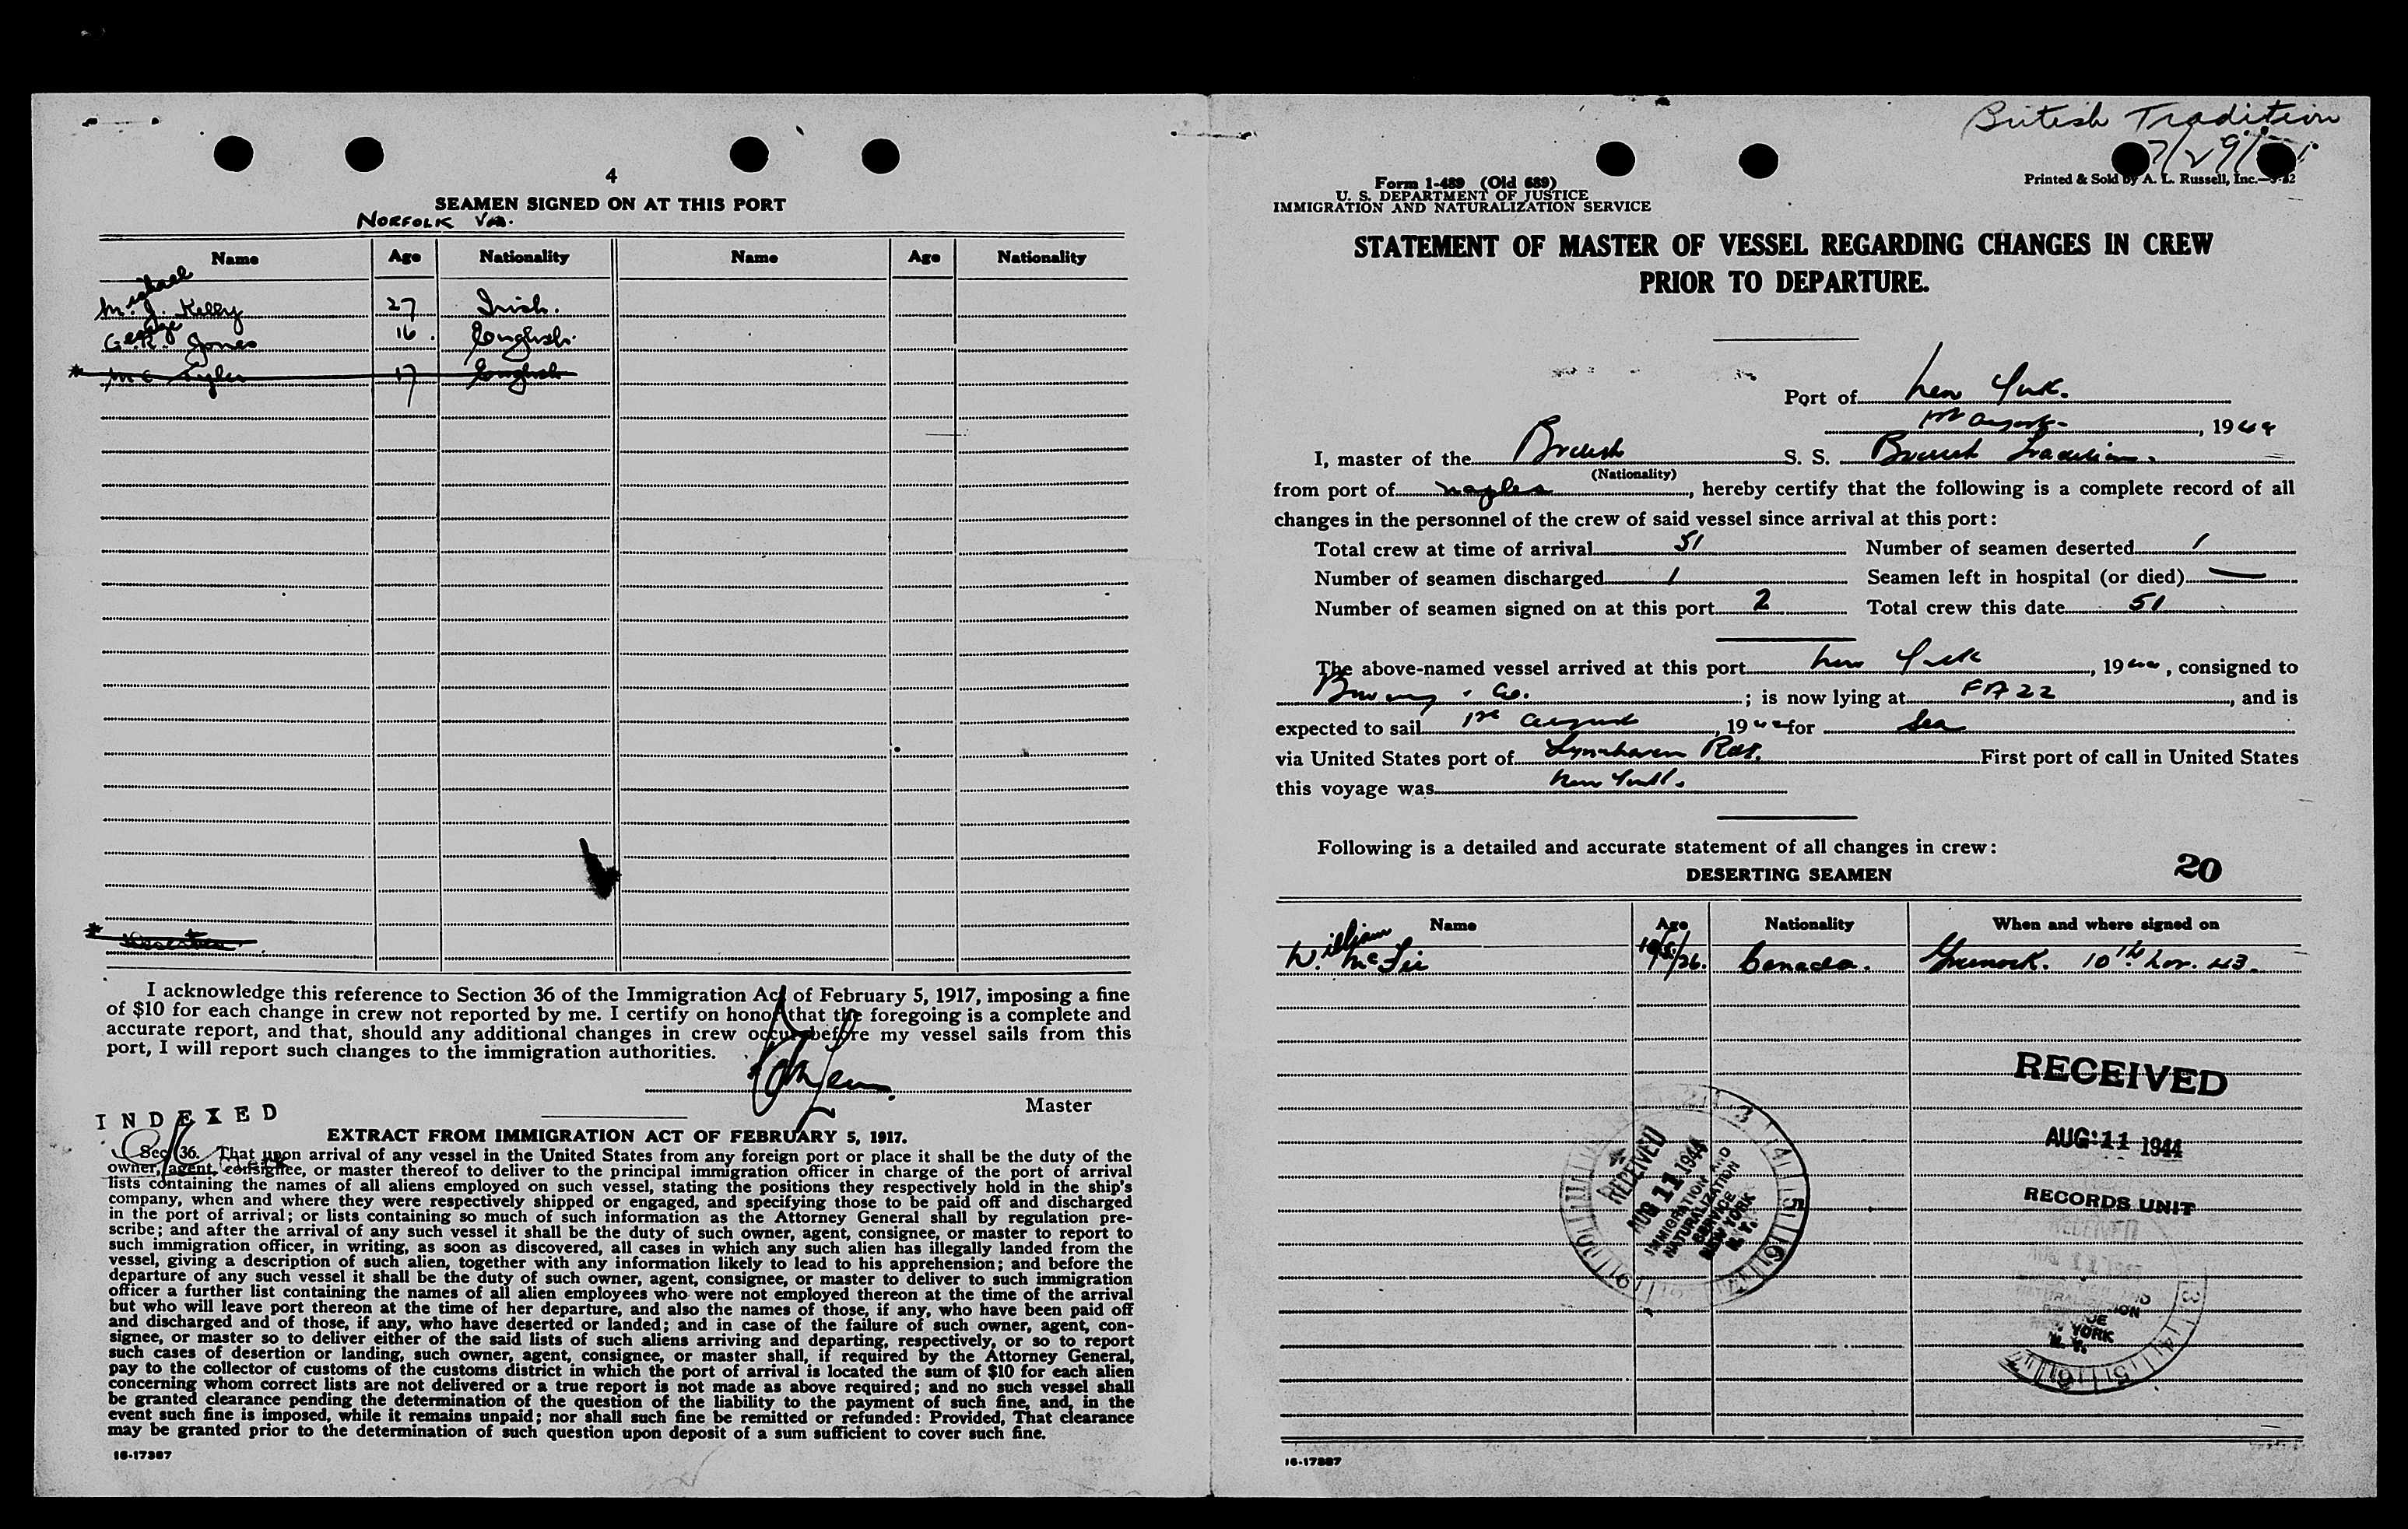 4
SEAMEN SIGNED ON AT THIS PORT
NORFOLK Va.
Name Age Nationality Name Age Nationality
Michael
M. J. Kelly 27 Irish.
George
G. R. Jones 16. English.
* 17 English
*
I acknowledge this reference to Section 36 of the Immigration Act of February 5, 1917, imposing a fine
of $10 for each change in crew not reported by me. I certify on honor that the foregoing is a complete and
accurate report, and that, should any additional changes in crew occur before my vessel sails from this
port, I will report such changes to the immigration authorities.
Master
INDEXED
EXTRACT FROM IMMIGRATION ACT OF FEBRUARY 5, 1917.
Sec. 36. That upon arrival of any vessel in the United States from any foreign port or place it shall be the duty of the
owner, agent, consignee, or master thereof to deliver to the principal immigration officer in charge of the port of arrival
lists containing the names of all aliens employed on such vessel, stating the positions they respectively hold in the ship's
company, when and where they were respectively shipped or engaged, and specifying those to be paid off and discharged
in the port of arrival; or lists containing so much of such information as the Attorney General shall by regulation pre-
scribe; and after the arrival of any such vessel it shall be the duty of such owner, agent, consignee, or master to report to
such immigration officer, in writing, as soon as discovered, all cases in which any such alien has illegally landed from the
vessel, giving a description of such alien, together with any information likely to lead to his apprehension; and before the
departure of any such vessel it shall be the duty of such owner, agent, consignee, or master to deliver to such immigration
officer a further list containing the names of all alien employees who were not employed thereon at the time of the arrival
but who will leave port thereon at the time of her departure, and also the names of those, if any, who have been paid off
and discharged and of those, if any, who have deserted or landed; and in case of the failure of such owner, agent, con-
signee, or master so to deliver either of the said lists of such aliens arriving and departing, respectively, or so to report
such cases of desertion or landing, such owner, agent, consignee, or master shall, if required by the Attorney General,
pay to the collector of customs of the customs district in which the port of arrival is located the sum of $10 for each alien
concerning whom correct lists are not delivered or a true report is not made as above required; and no such vessel shall
be granted clearance pending the determination of the question of the liability to the payment of such fine, and, in the
event such fine is imposed, while it remains unpaid; nor shall such fine be remitted or refunded: Provided, That clearance
may be granted prior to the determination of such question upon deposit of a sum sufficient to cover such fine.
16-17387
British Tradition
7/29/
Form 1-489 (Old 689)
U. S. DEPARTMENT OF JUSTICE
IMMIGRATION AND NATURALIZATION SERVICE
Printed & Sold by A. L. Russell, Inc.
STATEMENT OF MASTER OF VESSEL REGARDING CHANGES IN CREW
PRIOR TO DEPARTURE.
Port of New York.
1st August, 1944
I, master of the British S. S. British Tradition.
(Nationality)
from port of Naples, hereby certify that the following is a complete record of all
changes in the personnel of the crew of said vessel since arrival at this port:
Total crew at time of arrival 51 Number of seamen deserted 1
Number of seamen discharged 1 Seamen left in hospital (or died) —
Number of seamen signed on at this port 2 Total crew this date 51
The above-named vessel arrived at this port New York, 1944, consigned to
Co.; is now lying at FA 22, and is
expected to sail 1st August, 1944 for Sea
via United States port of Lynnhaven Rds. First port of call in United States
this voyage was New York.
Following is a detailed and accurate statement of all changes in crew:
DESERTING SEAMEN 20
Name Age Nationality When and where signed on
William
W. /26. Canada. Greenock. 10th Nov. 43.
RECEIVED
AUG 11 1944
RECORDS UNIT
RECEIVED
AUG 11 1944
IMMIGRATION AND
NATURALIZATION
SERVICE
NEW YORK
N. Y.
16-17387